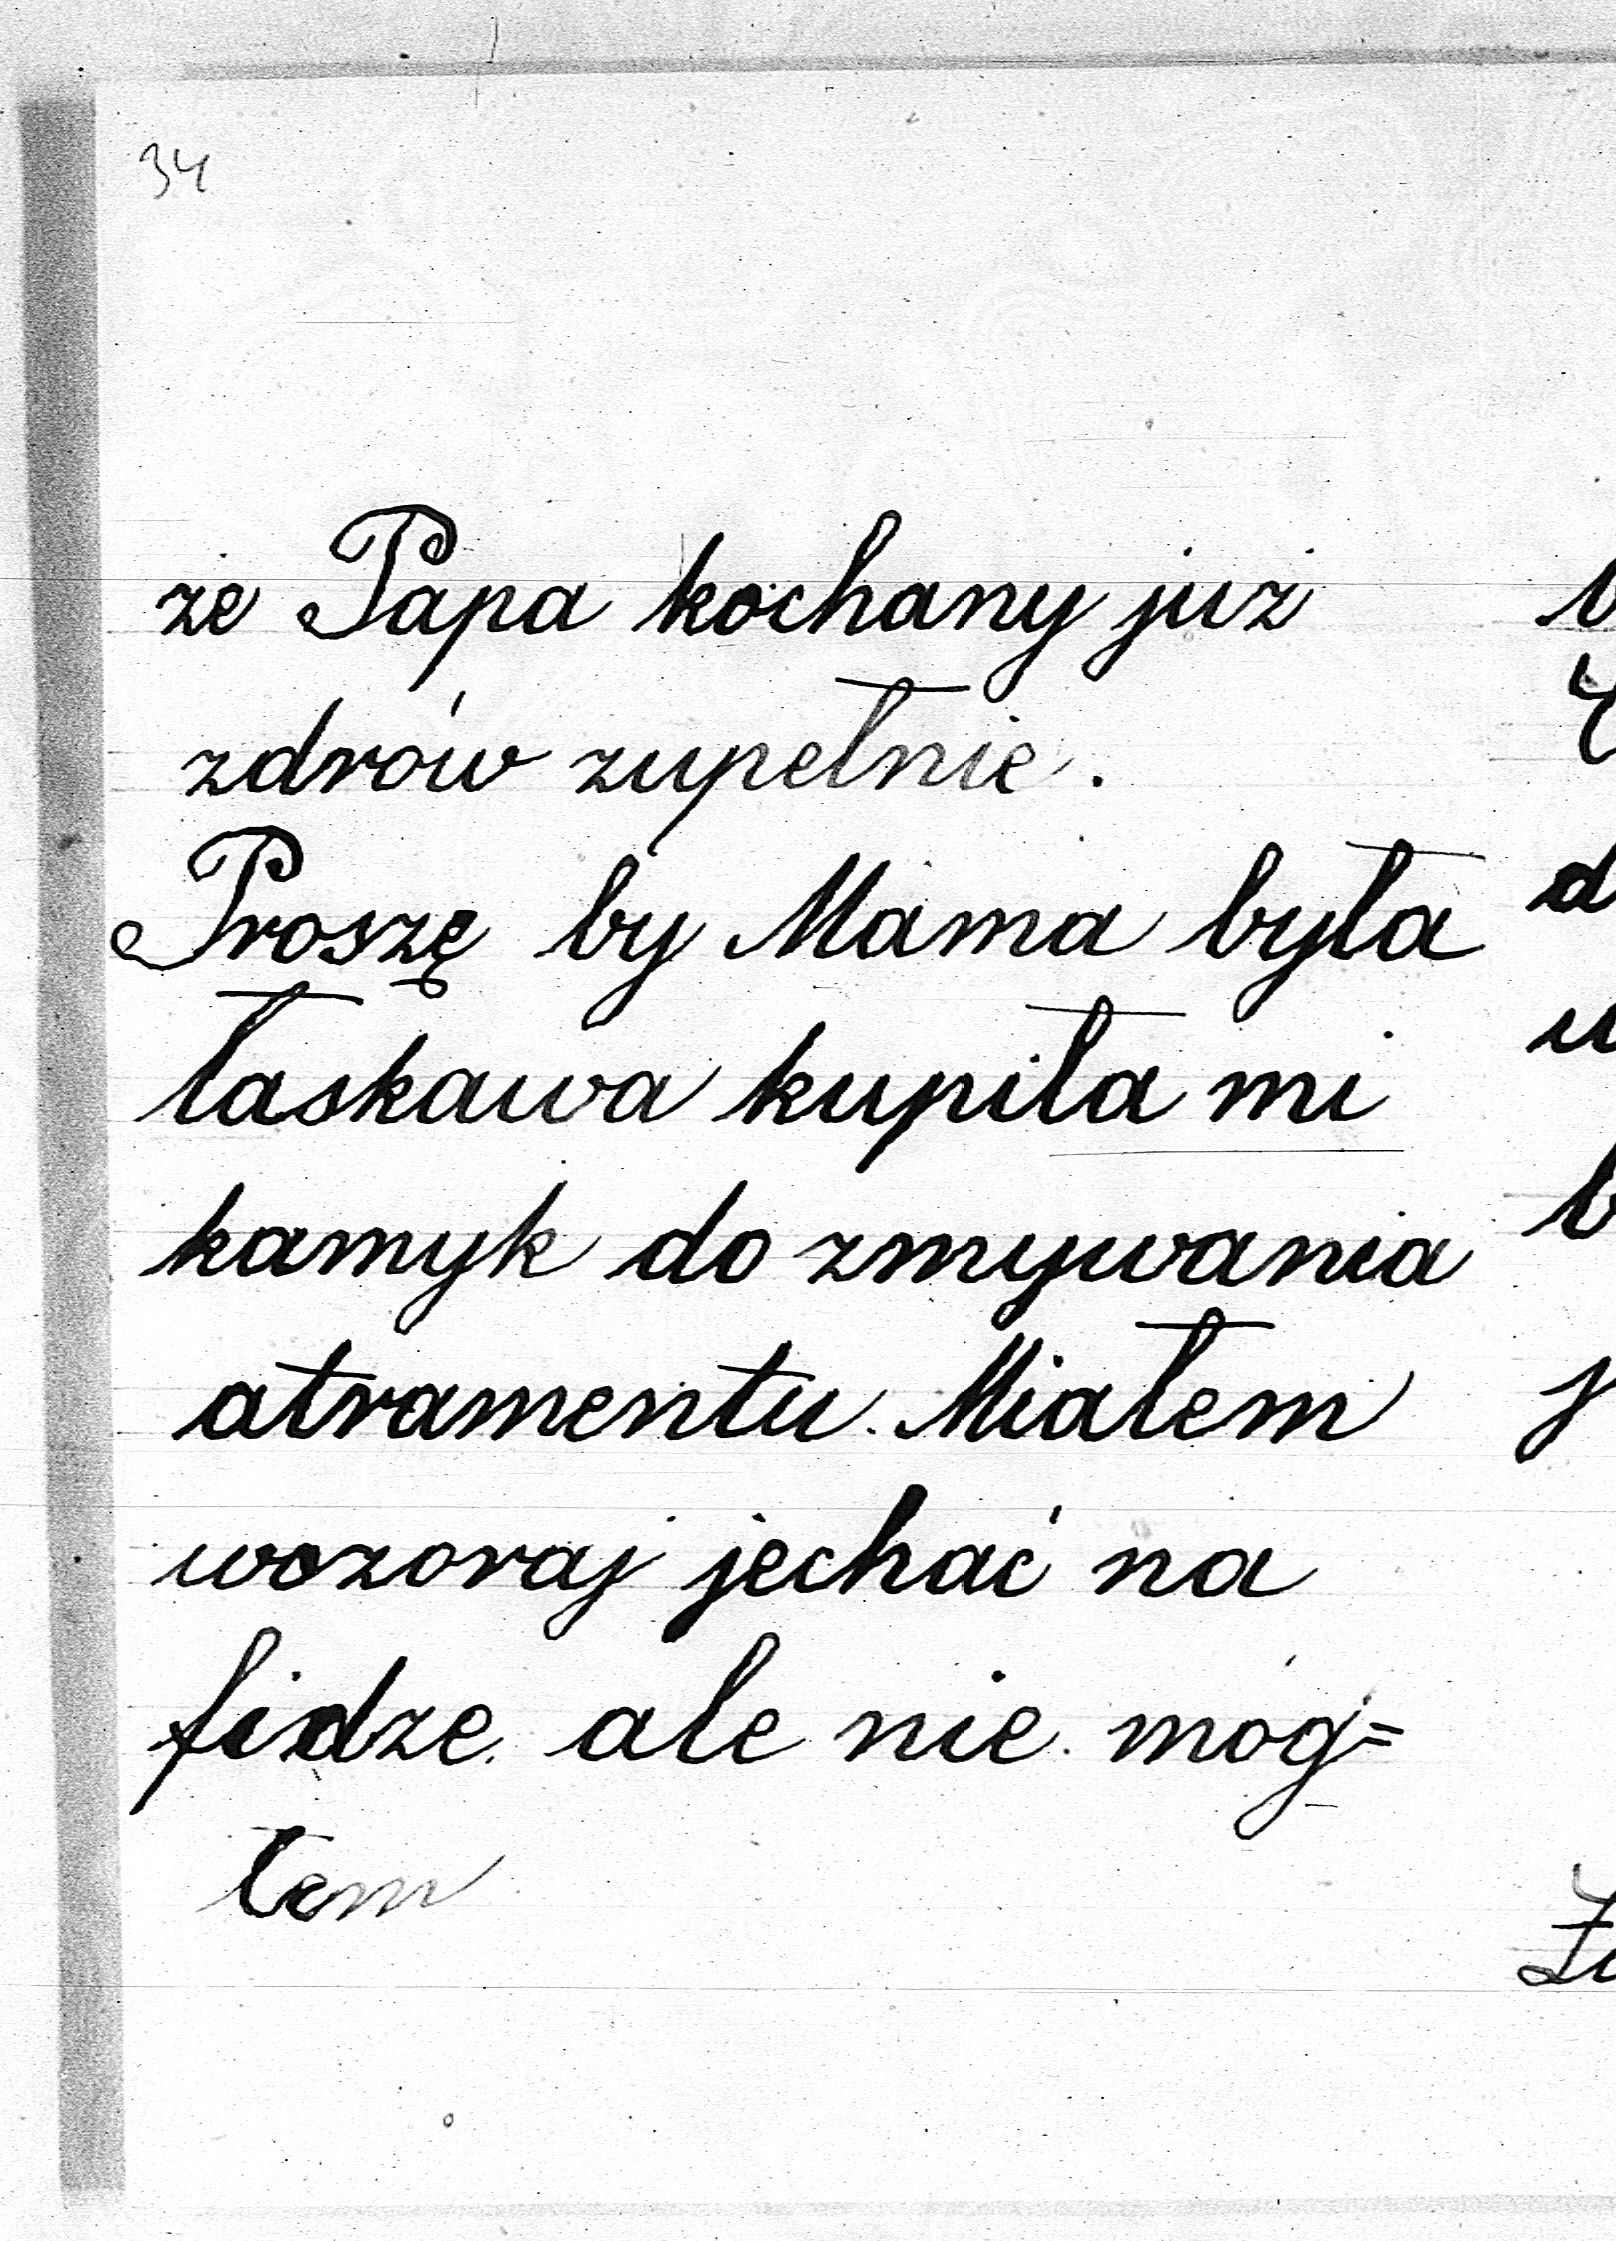 34
że Papa kochany już
zdrów zupełnie.
Proszę by Mama była
łaskawa kupiła mi
kamyk do zmywania
atramentu. Miałem
wczoraj jechać na
fidze ale nie móg=
łem